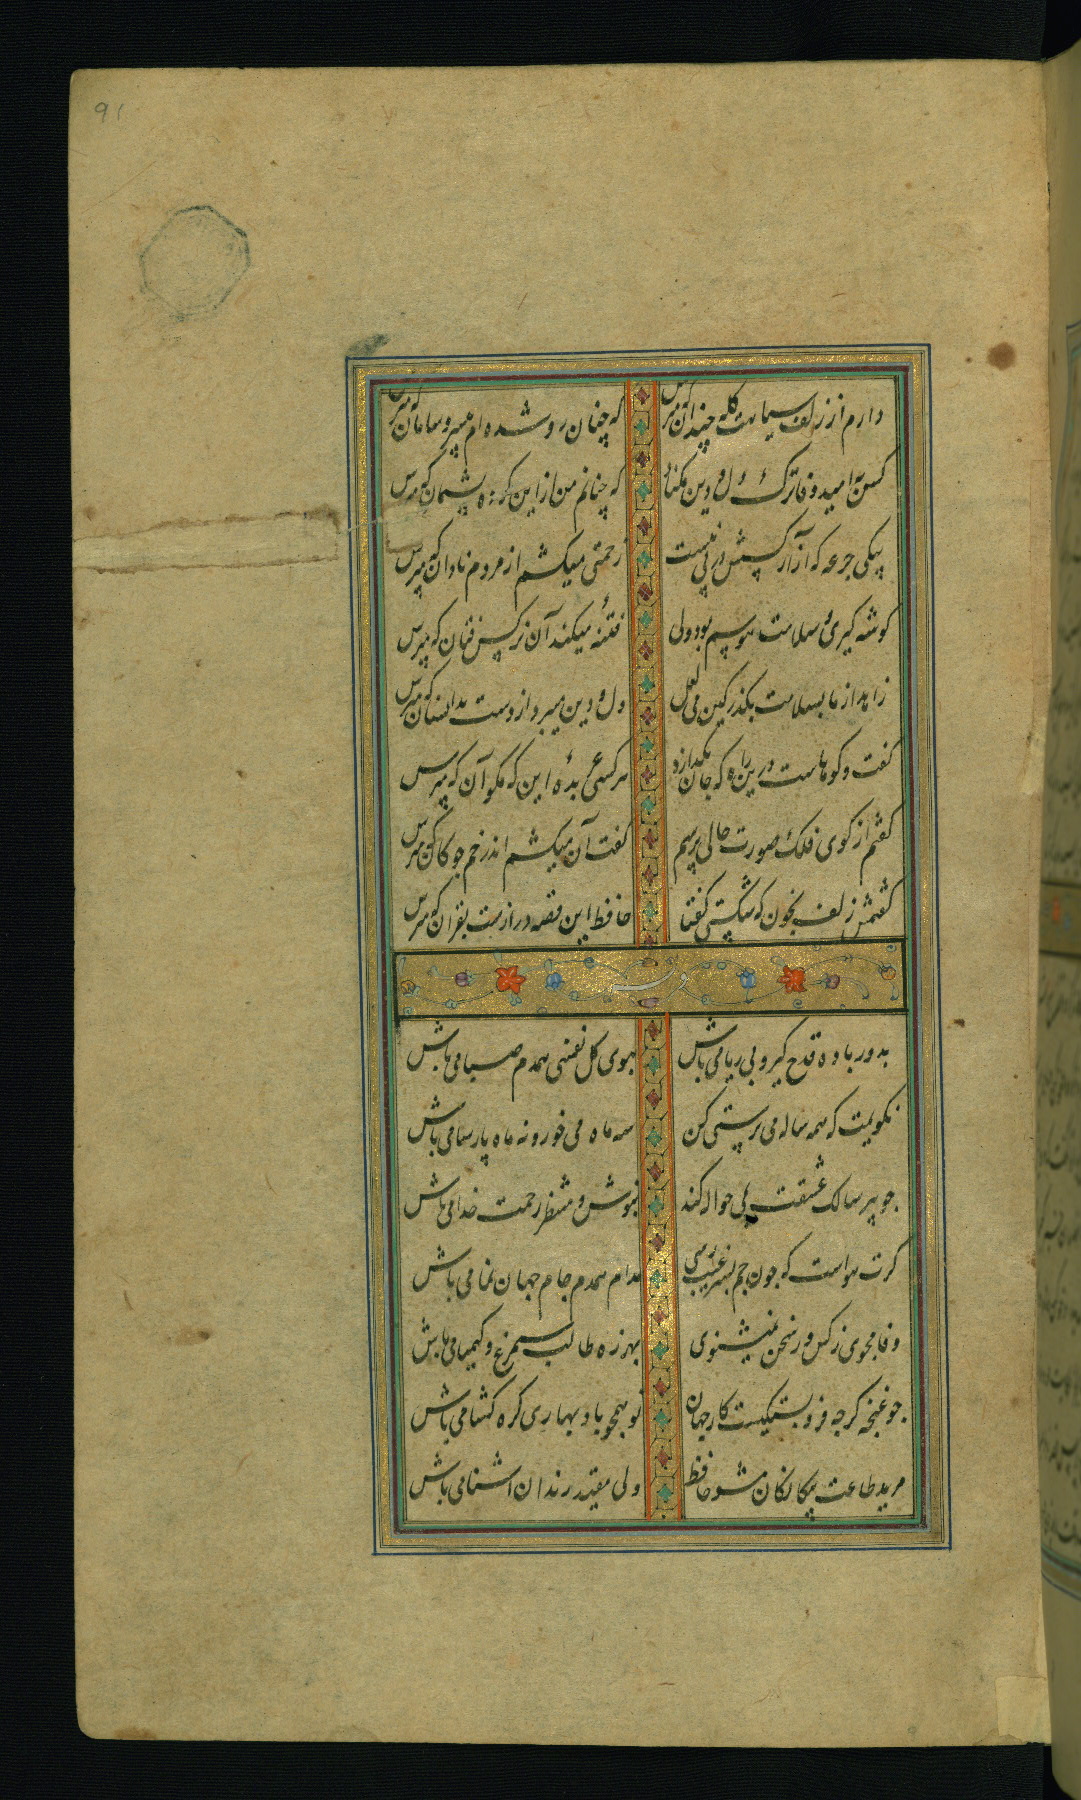 91
دارم از زلف سیاهت گله چندان که مپرس که چنان زو شده ام بیسر و سامان که مپرس
کس به امید وفا ترک دل و دین مکناد که چنانم من ازین کرده پشیمان که مپرس
بیکی جرعه که آزار کسش در پی نیست زحمتی میکشم از مردم نادان که مپرس
کوشه کیری و سلامت هوسم بود ولی فتنهٔ میکند آن نرکس فتان که مپرس
زاهد از ما بسلامت بکذر کین می لعل دل و دین میبرد از دست بدانسان که مپرس
کفت و کوهاست درین راه که جان بکدازد هر کسی عربدهٔ این که مکو آن که مپرس
کفتم از کوی فلک صورت حالی پرسم کفت آن میکشم اندر خم جوکان که مپرس
کفتمش زلف بخون که شکستی کفتا حافظ این قصه درازست بقران که مپرس
بدور باده قدح کیر و بی ریا می باش ببوی کل نفسی همدم صبا می باش
نکویمت که همه ساله می پرستی کن سه ماه می خور و نه ماه پارسا می باش
جو پیر سالک عشقت بمی حواله کند بنوش و منتظر رحمت خدا می باش
کرت هواست که جون جم بسر غیب رسی مدام همدم جام جهان نما می باش
وفا مجوی ز کس ور سخن نمیشنوی بهرزه طالب سیمرغ و کیمیا می باش
جو غنچه کرجه فروبستکیست کار جهان تو همچو باد بهاری کره کشا می باش
مرید طاعت بیکانکان مشو حافظ ولی مقید رندان اشنا می باش